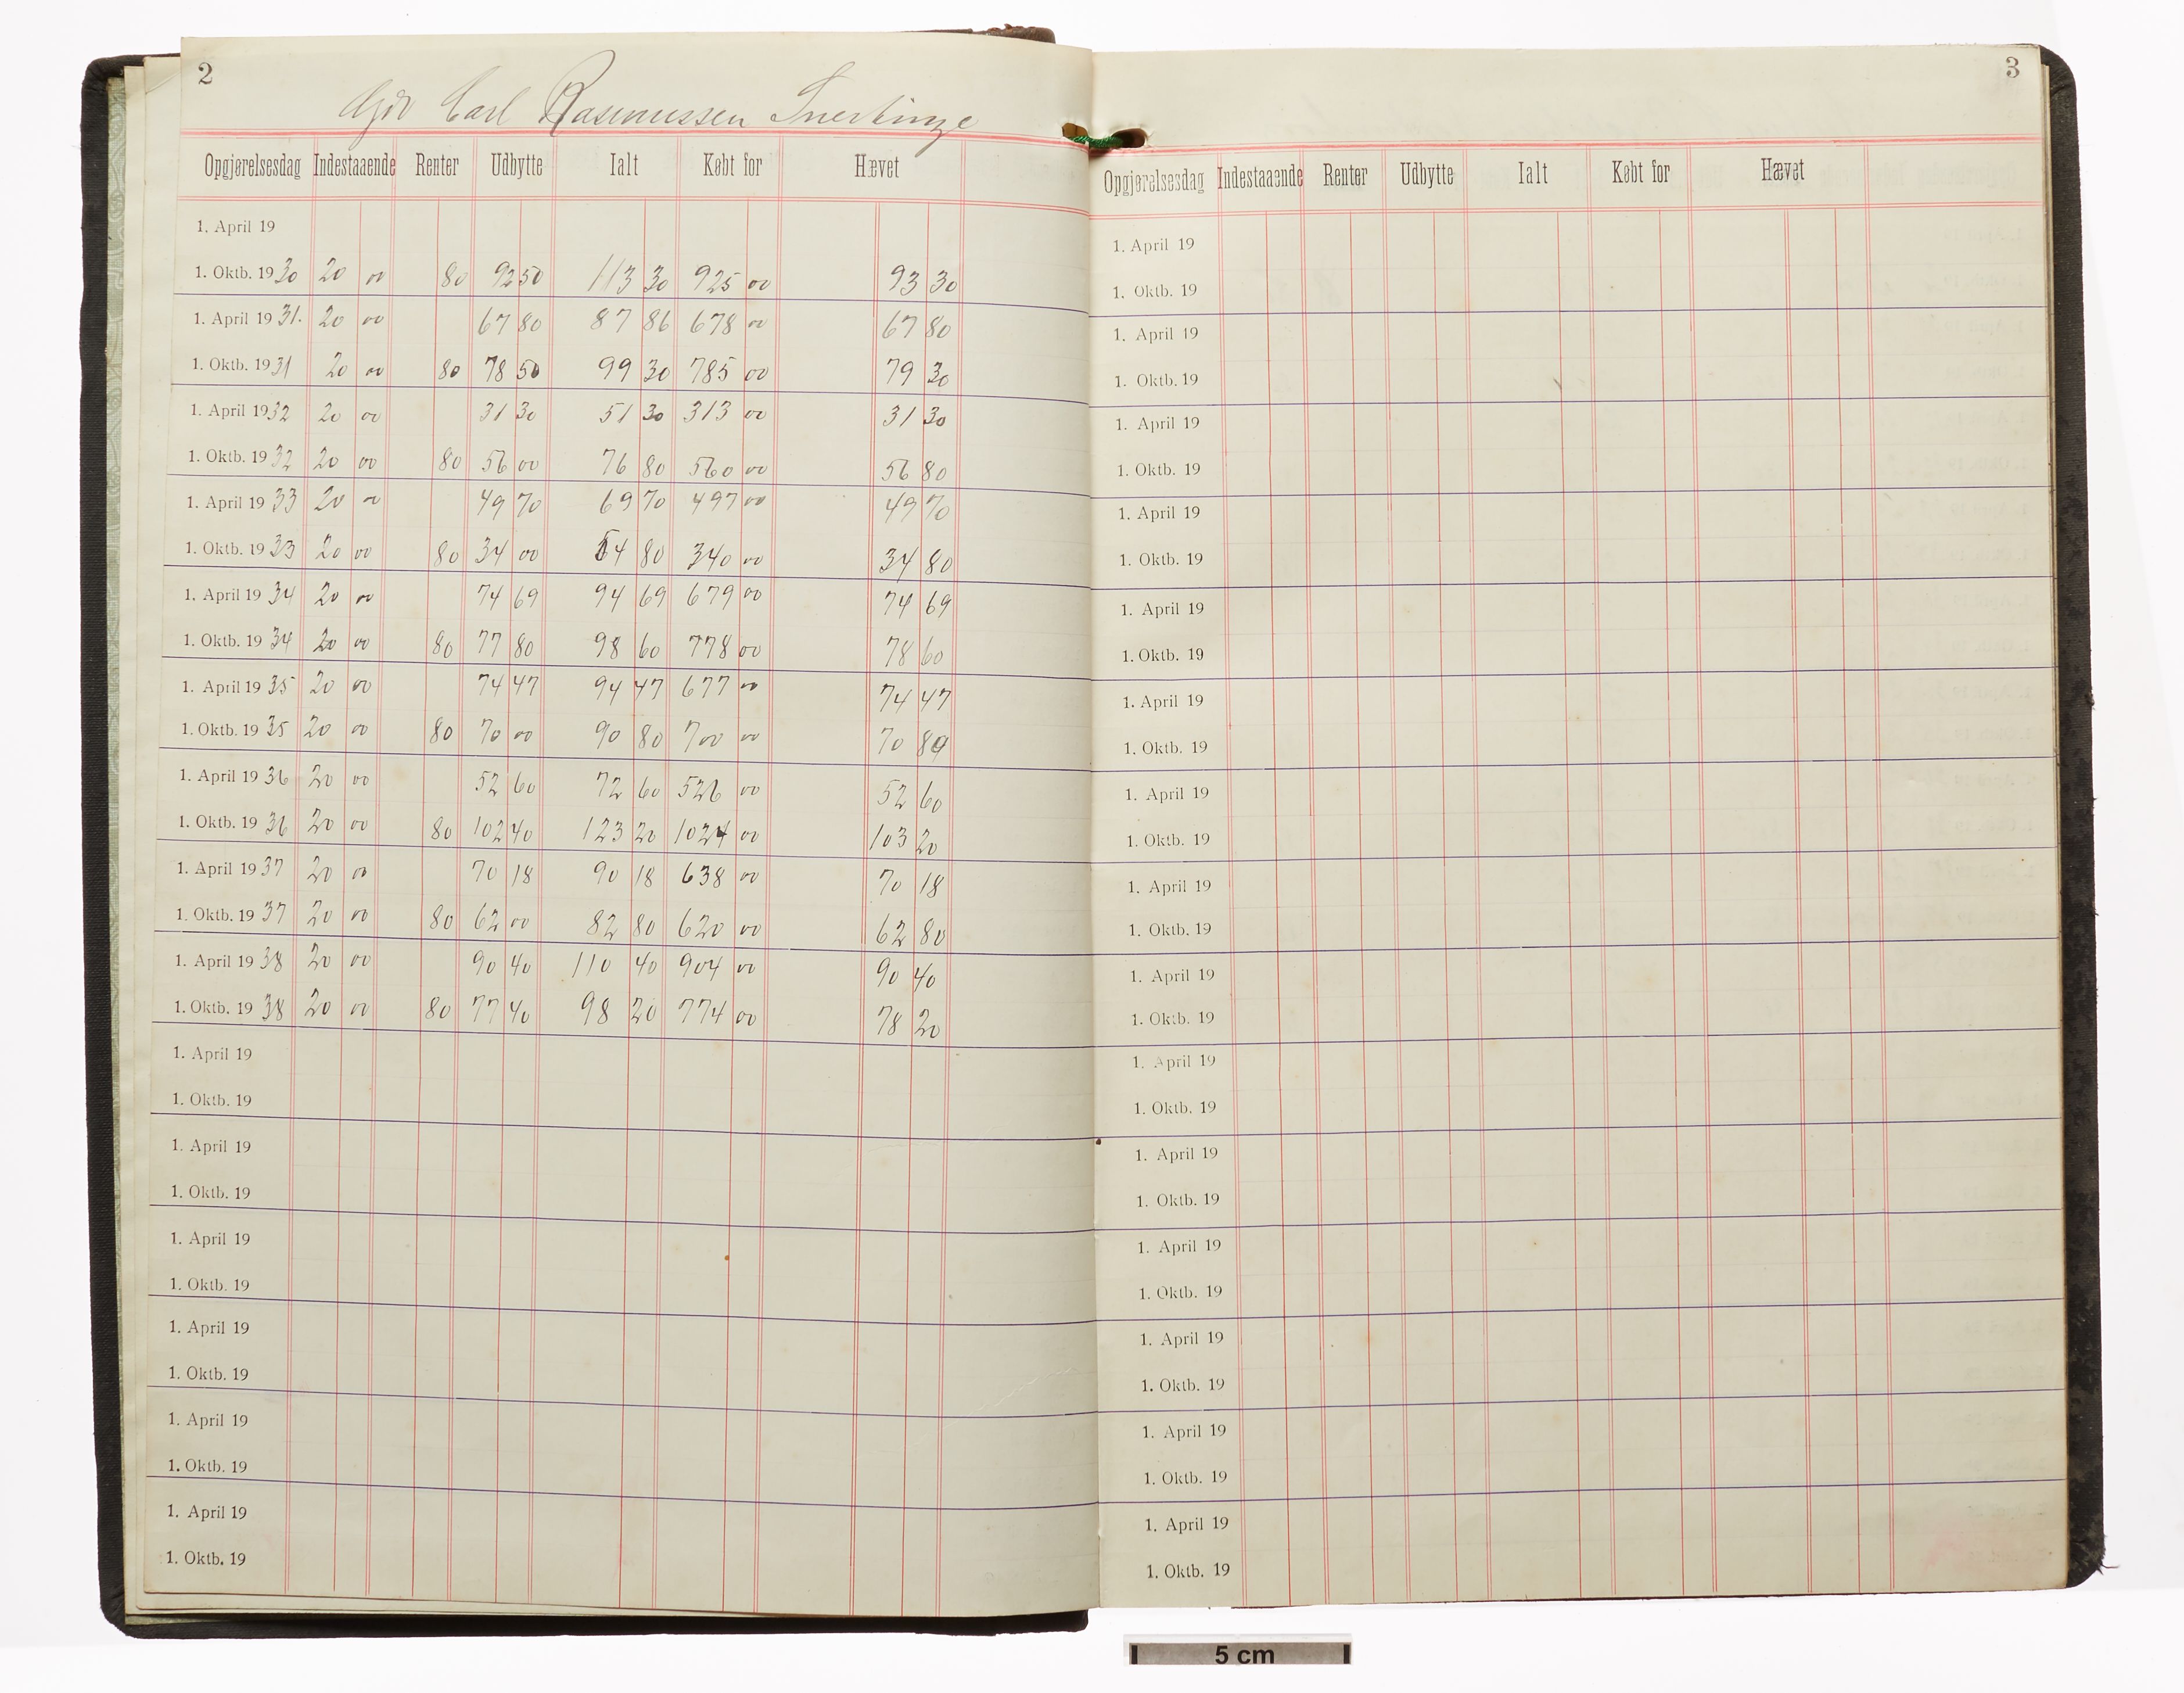 2
Gdr Carl Rasmussen Snertinge
Opgjørelsesdag Indestaaende Renter Udbytte Ialt Købt for Hævet
1. April 19
1. Oktb. 1930 20 00 80 92 50 113 30 925 00 93 30
1. April 1931. 20 00 67 80 87 86 678 00 67 80
1. Oktb. 1931 20 00 80 78 50 99 30 785 00 79 30
1. April 1932 20 00 31 30 51 30 313 00 31 30
1. Oktb. 1932 20 00 80 56 00 76 80 560 00 56 80
1. April 1933 20 00 49 70 69 70 497 00 49 70
1. Oktb. 1933 20 00 80 34 00 54 80 340 00 34 80
1. April 1934 20 00 74 69 94 69 679 00 74 69
1. Oktb. 1934 20 00 80 77 80 98 60 778 00 78 60
1. April 1935 20 00 74 47 94 47 677 00 74 47
1. Oktb. 1935 20 00 80 70 00 90 80 700 00 70 80
1. April 1936 20 00 52 60 72 60 526 00 52 60
1. Oktb. 1936 20 00 80 102 40 123 20 1024 00 103 20
1. April 1937 20 00 70 18 90 18 638 00 70 18
1. Oktb. 1937 20 00 80 62 00 82 80 620 00 62 80
1. April 1938 20 00 90 40 110 40 904 00 90 40
1. Oktb. 1938 20 00 80 77 40 98 20 774 00 78 20
1. April 19
1. Oktb. 19
1. April 19
1. Oktb. 19
1. April 19
1. Oktb. 19
1. April 19
1. Oktb. 19
1. April 19
1. Oktb. 19
1. April 19
1. Oktb. 19
3
Opgjørelsesdag Indestaaende Renter Udbytte Ialt Købt for Hævet
1. April 19
1. Oktb. 19
1. April 19
1. Oktb. 19
1. April 19
1. Oktb. 19
1. April 19
1. Oktb. 19
1. April 19
1. Oktb. 19
1. April 19
1. Oktb. 19
1. April 19
1. Oktb. 19
1. April 19
1. Oktb. 19
1. April 19
1. Oktb. 19
1. April 19
1. Oktb. 19
1. April 19
1. Oktb. 19
1. April 19
1. Oktb. 19
1. April 19
1. Oktb. 19
1. April 19
1. Oktb. 19
1. April 19
1. Oktb. 19
5 cm